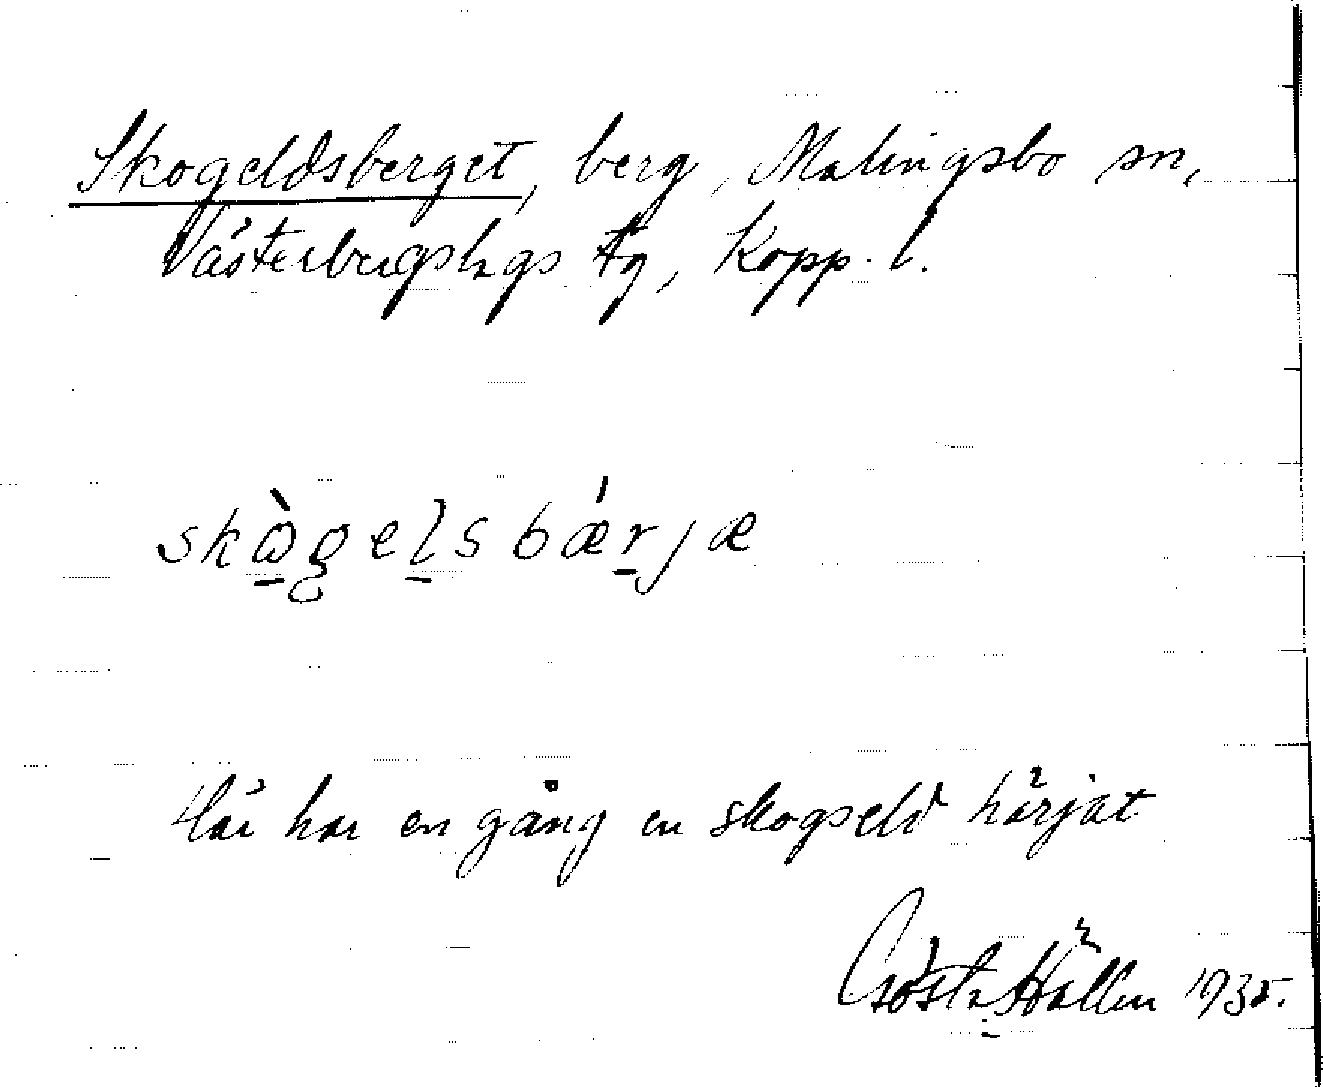 Skogeldsberget, berg, Malingsbo sn,
Västerbergslags tg, Kopp. l.
skò̱geḻsbǽṟjæ
Här har en gång en skogseld härjat
Gösta Hällen 1935.